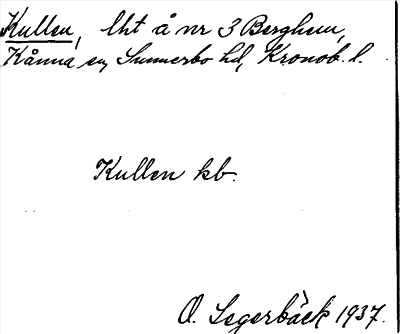 Kullen, lht å nr 3 Berghem,
Kånna sn, Sunnerbo hd, Kronob. l.
Kullen kb.
O. Segerbäck 1937.